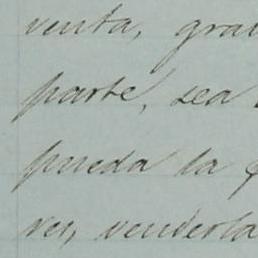 venta, gra
parte, sea
pueda la
ver, venderla